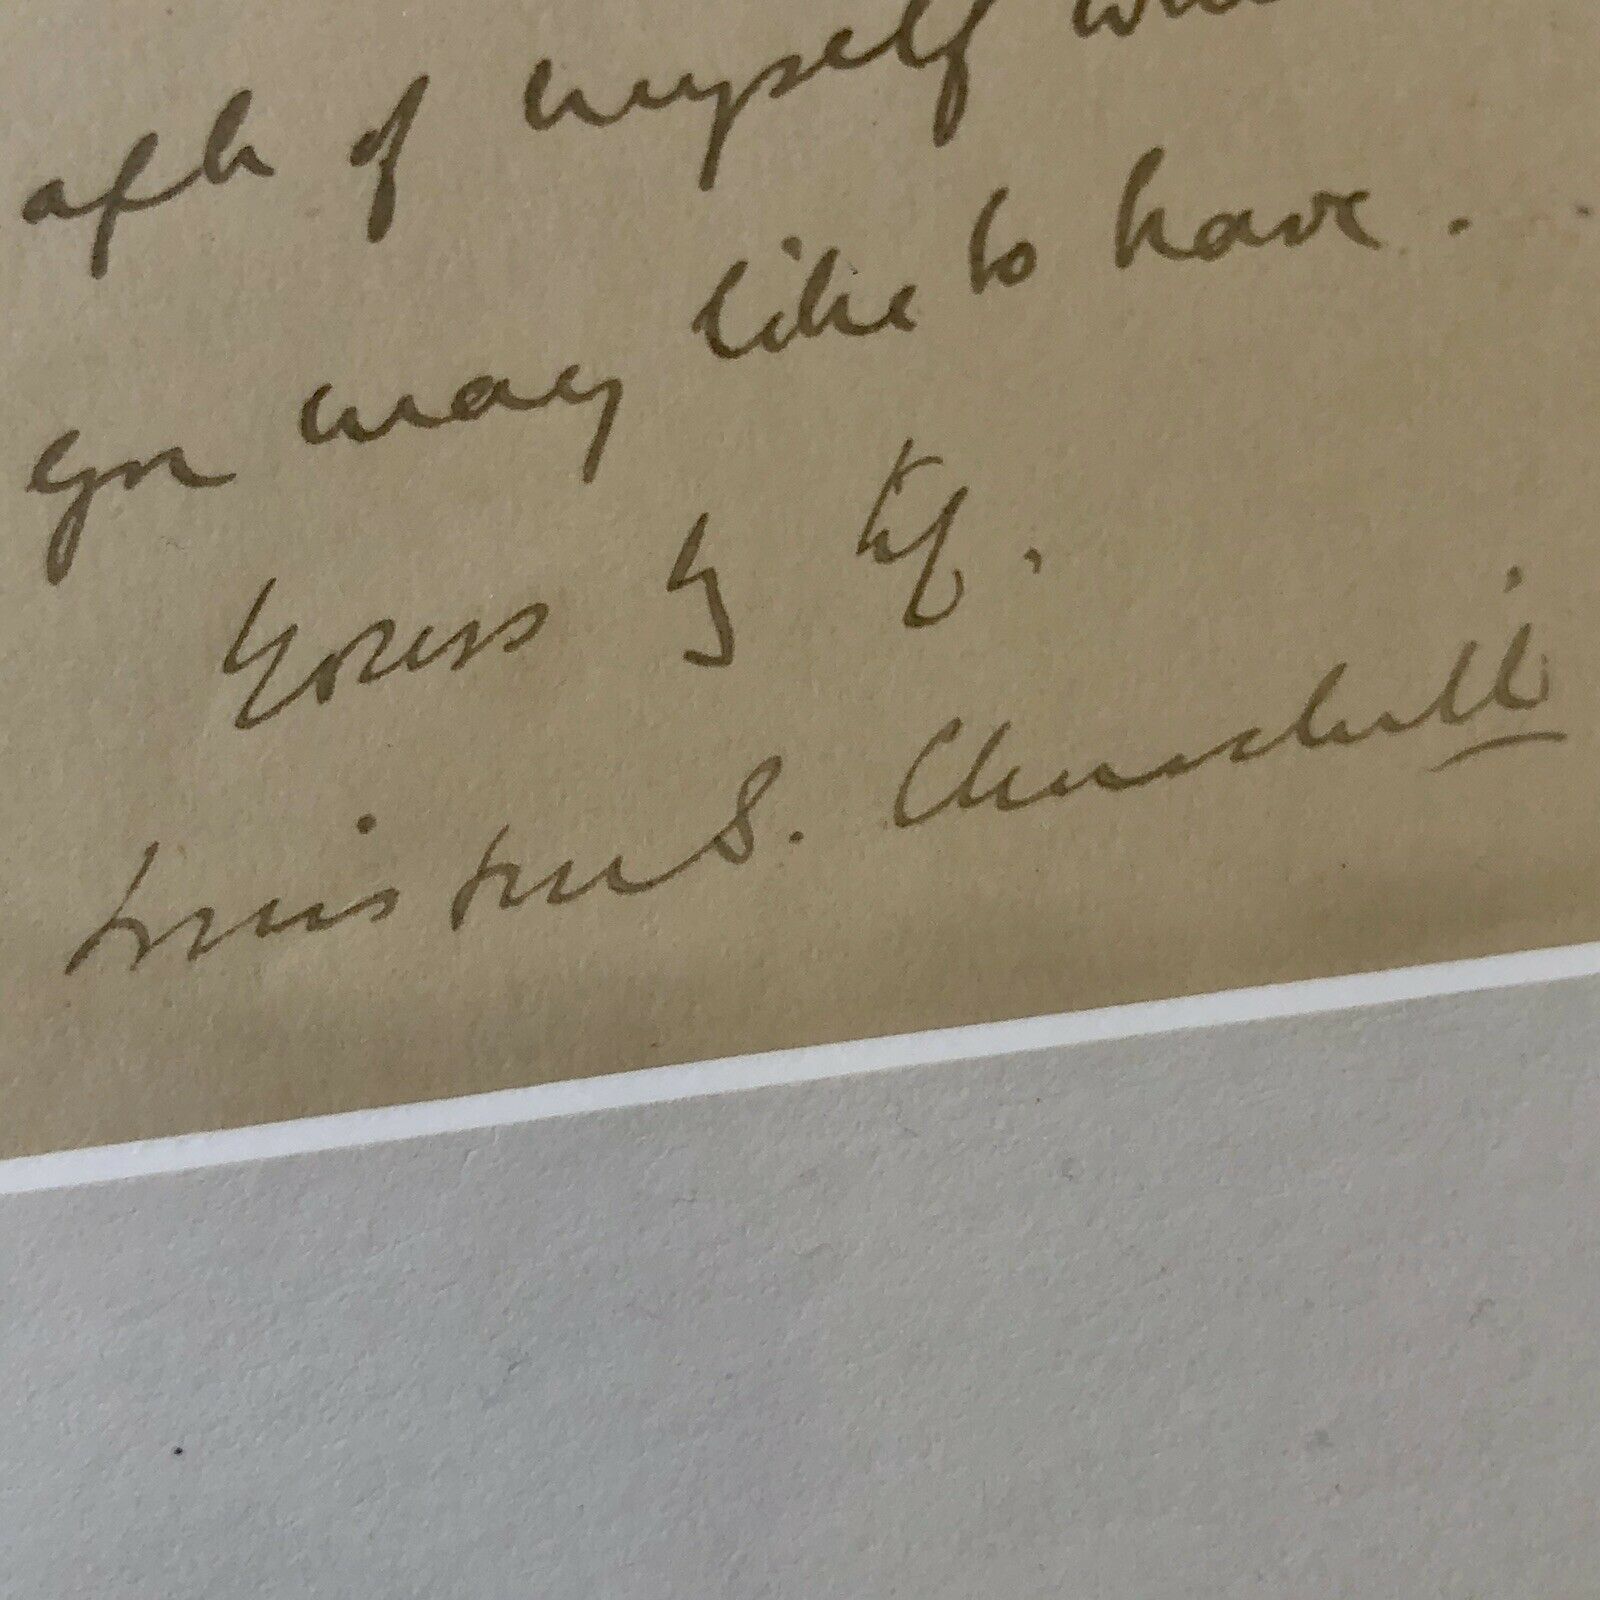 aph of myself
you may like to have.
Yours
Winston S. Churchill